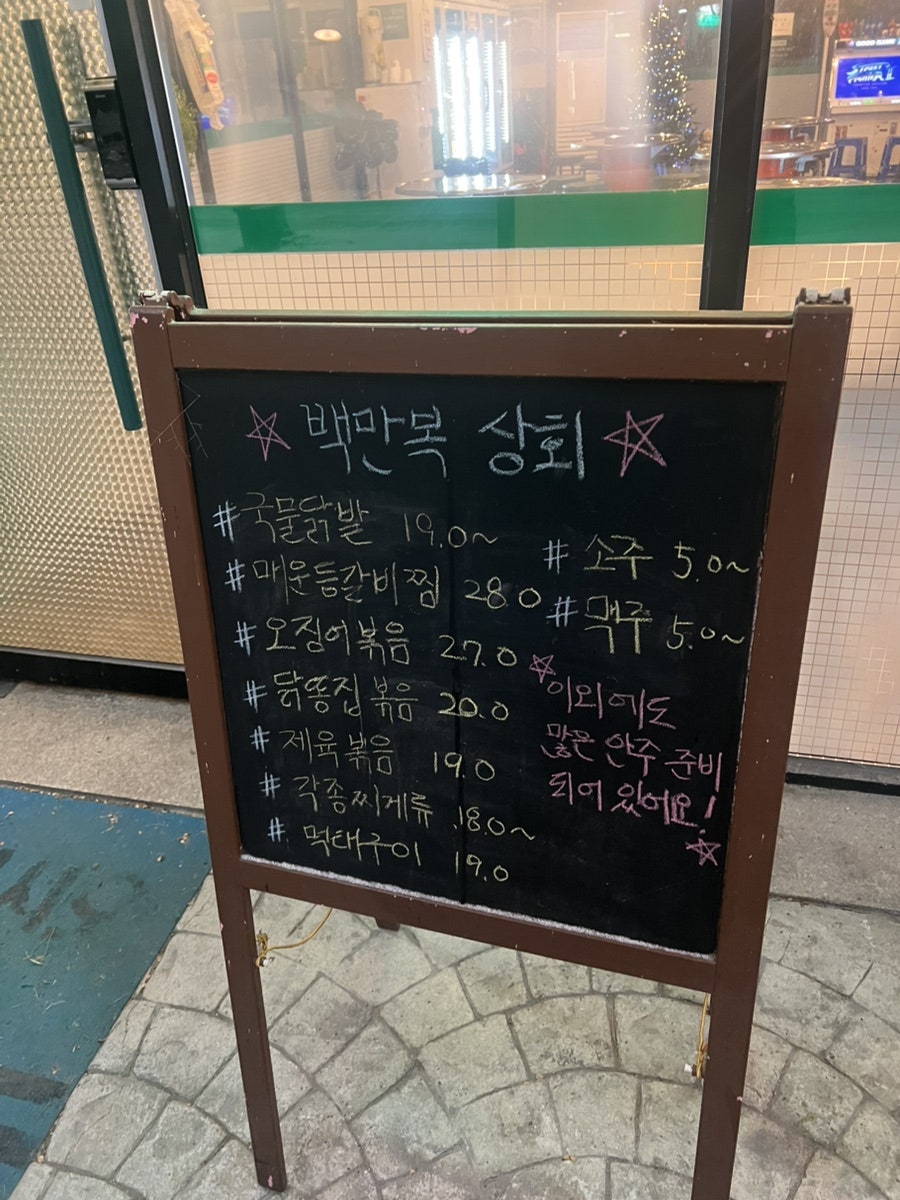 백만목 상회
#국물닭발 19.0~
#매운등갈비찜 28.0
#오징어볶음 27.0
#닭똥집볶음 20.0
#제육볶음 19.0
#각종찌게류 18.0~
#먹태구이 19.0
#소주 5.0~
#맥주 5.0~
이외에도
많은 안주 준비
되어 있어요!